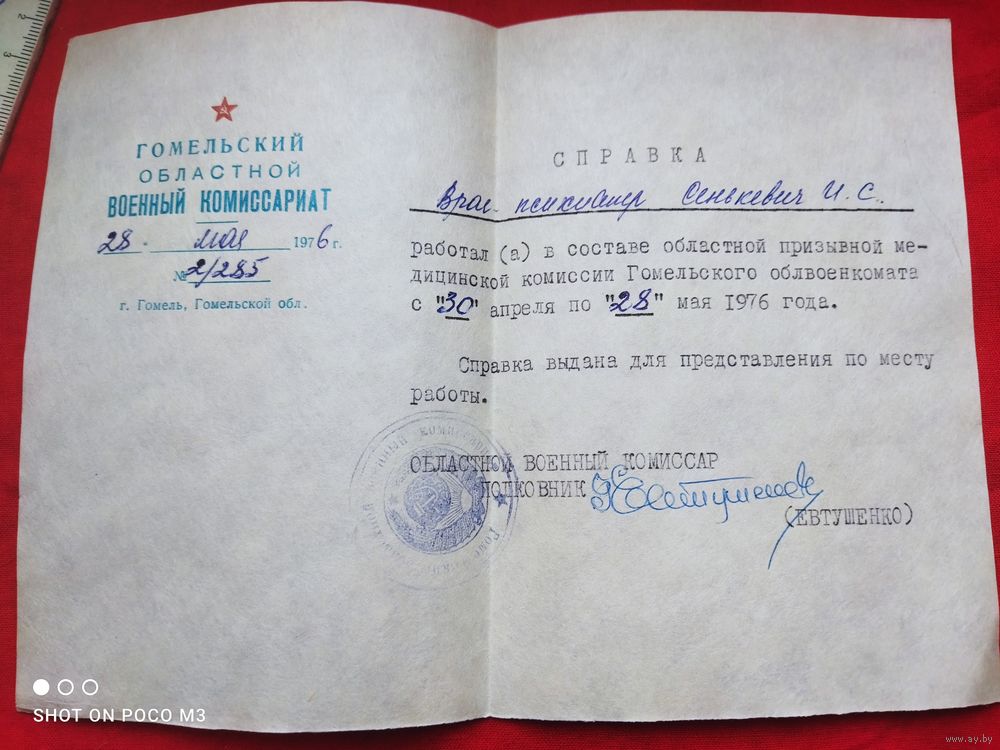 ГОМЕЛЬСКИЙ
ОБЛАСТНОЙ
ВОЕННЫЙ КОМИССАРИАТ
28 мая 1976 г.
№ 2/285
г. Гомель, Гомельской обл.
СПРАВКА
Врач-психиатр Сенькевич И.С.
работал (а) в составе областной призывной ме-
дицинской комиссии Гомельского облвоенкомата
с "30" апреля по "28" мая 1976 года.
Справка выдана для представления по месту
работы.
ОБЛАСТНОЙ ВОЕННЫЙ КОМИССАР
ПОЛКОВНИК
(ЕВТУШЕНКО)
SHOT ON POCO M3
www.ay.by